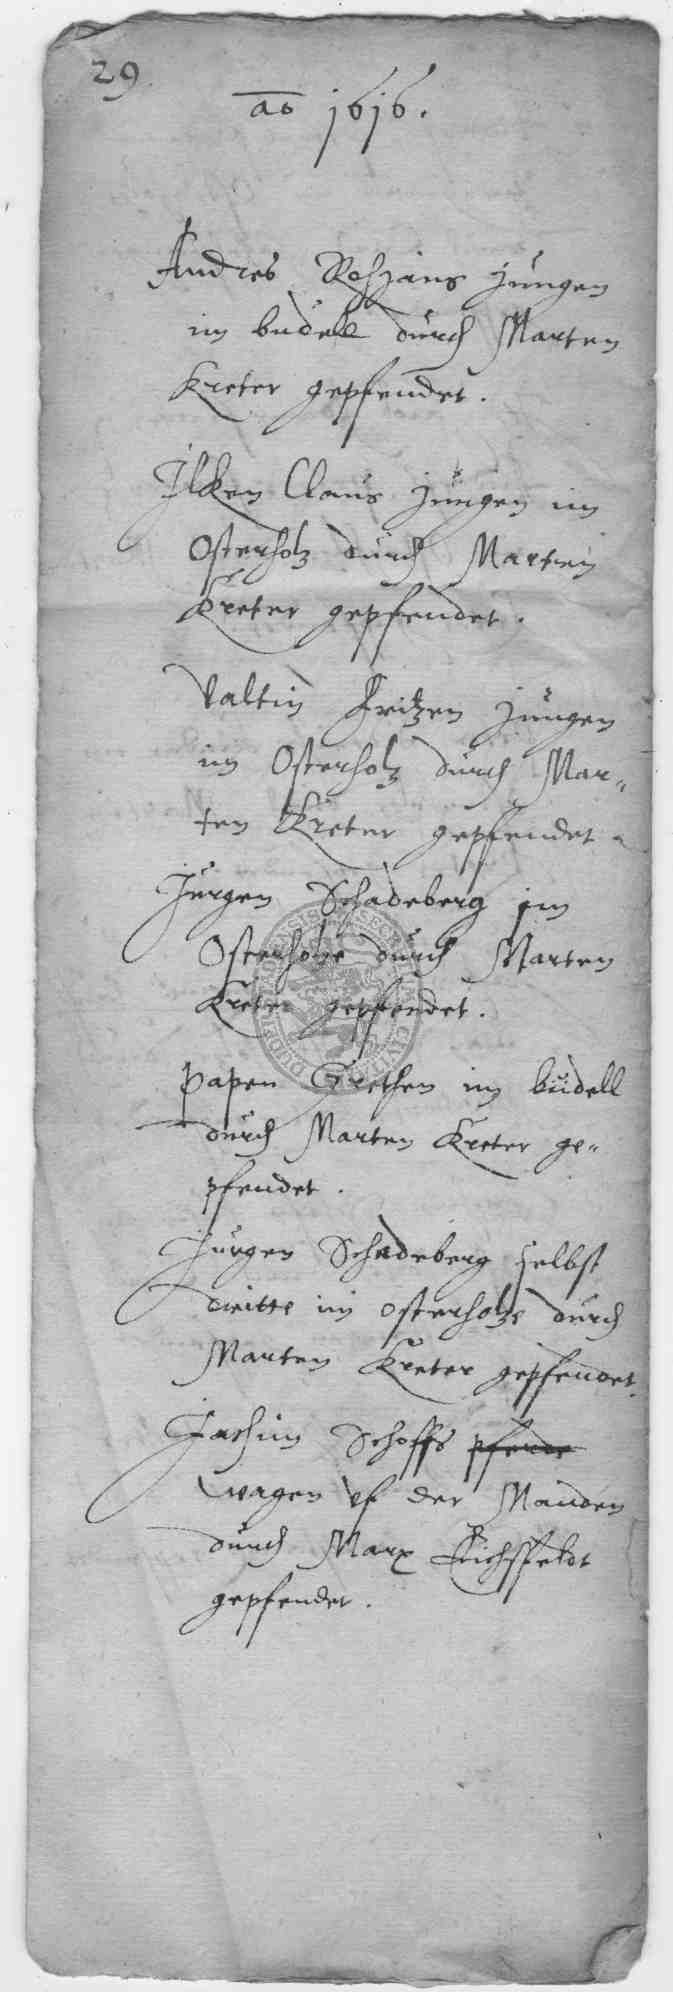 29
ao 1616.
Andres Roszans jungen
im budell durch Marten
Kreter gepfendet.
Ilken Claus jungen im
Osterholz durch Marten
Kreter gepfendet.
Valtin Fritzen jungen
im Osterholz durch Mar„
ten Kreter gepfendet
Jurgen Schadeberg im
Osterholze durch Marten
Kreter gepfendet.
Papen Grethen im büdell
durch Marten Kreter ge„
pfendet.
Jurgen Schadeberg selbst
dritte im osterholze durch
Marten Kreter gepfendet.
Jachim Schoffs pferde
wagen uf der Mauden
durch Marx Eichsfeldt
gepfendet.